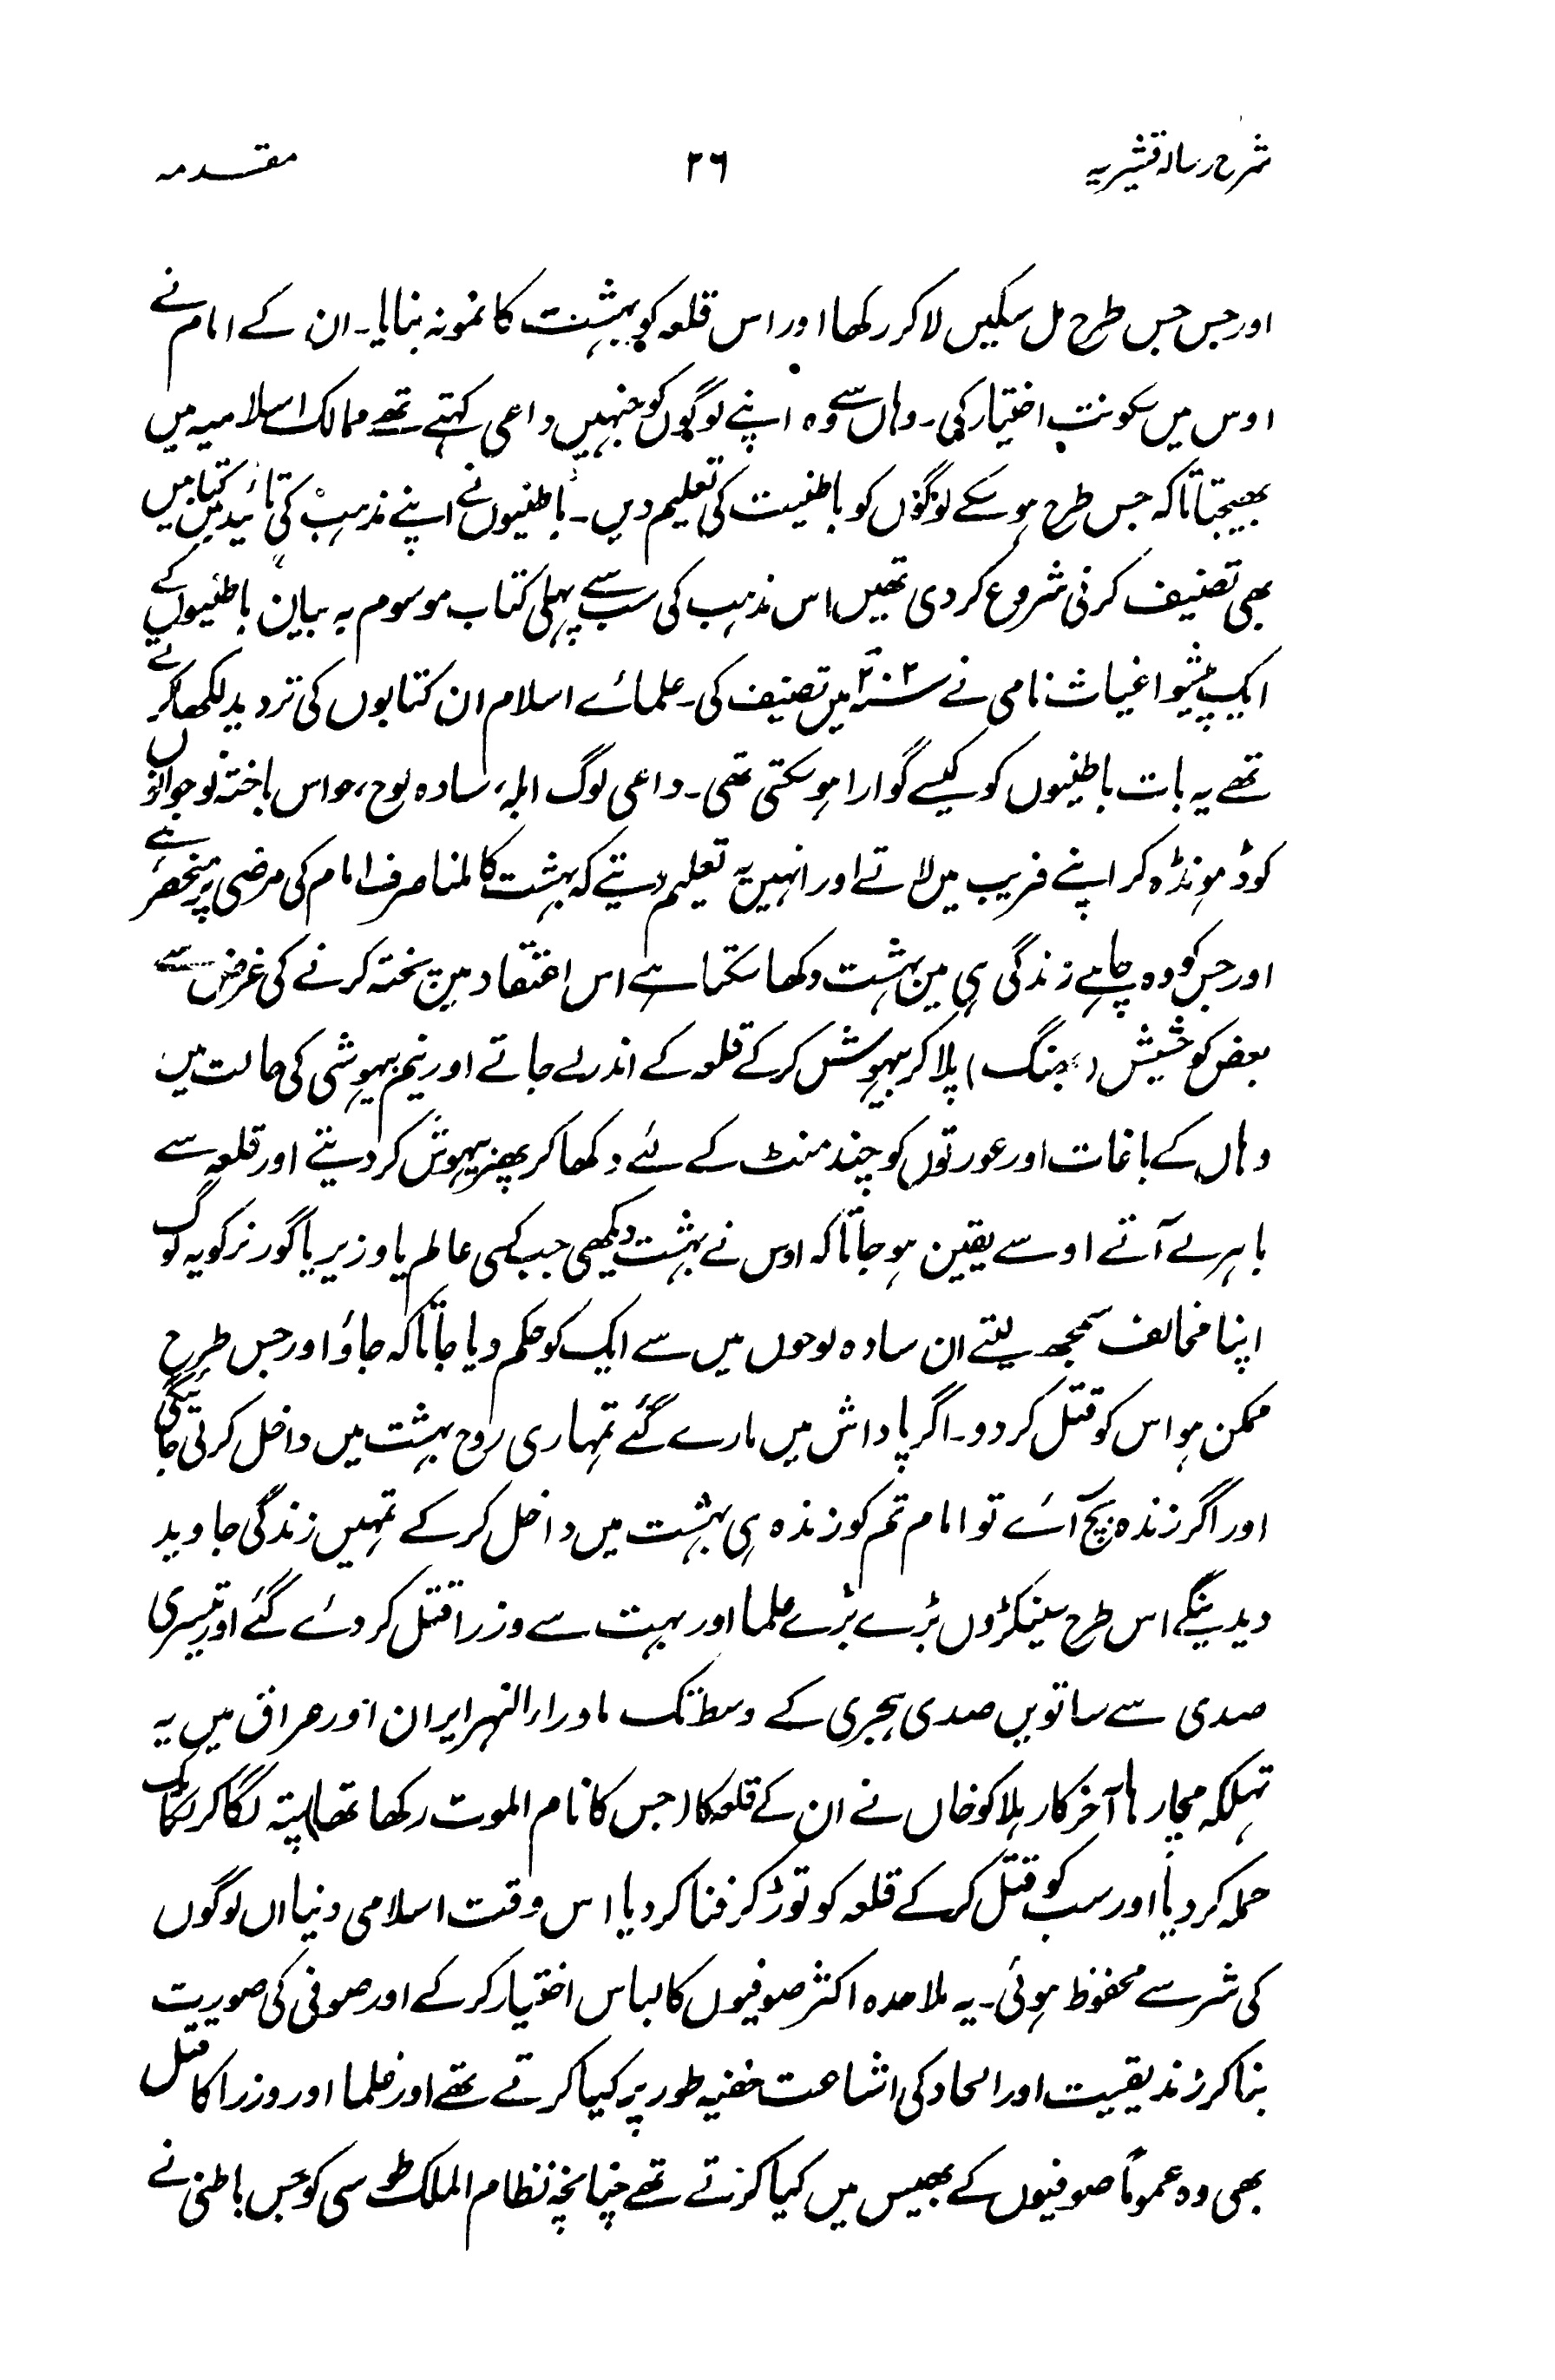 شرح رسالہ قشیریہ ۲۶ مقدمہ
اور جس جس طرح مل سکیں لا کر رکھا اور اس قلعہ کو بہشت کا نمونہ بنایا۔ ان کے امام نے
اوس میں سکونت اختیار کی۔ وہاں سے وہ اپنے لوگوں کو جنہیں داعی کہتے تھے ممالک اسلامیہ میں
بھیجتا تاکہ جس طرح ہو سکے لوگوں کو باطنیت کی تعلیم دیں۔ باطنیوں نے اپنے مذہب کی تائید میں کتابیں
بھی تصنیف کرنی شروع کردی تھیں اس مذہب کی سب سے پہلی کتاب موسوم بہ بیان باطنیوں کے
ایک پیشوا غیاث نامی نے ۲۰۲ھ میں تصنیف کی۔ علمائے اسلام ان کتابوں کی تردید لکھا کرتے
تھے یہ بات باطنیوں کو کیسے گوارا ہو سکتی تھی۔ داعی لوگ ابلہ، سادہ لوح، حواس باختہ نوجوانوں
کو ڈہونڈہ کر اپنے فریب میں لاتے اور انہیں یہ تعلیم دیتے کہ بہشت کا ملنا صرف امام کی مرضی پر منحصر ہے
اور جس کو وہ چاہے زندگی ہی میں بہشت دکھا سکتا ہے اس اعتقاد میں پختہ کرنے کی غرض سے
بعض کو حشیش (بھنگ) پلا کر بیہوش کر کے قلعہ کے اندر لے جاتے اور نیم بیہوشی کی حالت میں
وہاں کے باغات اور عورتوں کو چند منٹ کے لئے دکھا کر پھر بیہوش کر دیتے اور قلعہ سے
باہر لے آتے اوسے یقین ہو جاتا کہ اوس نے بہشت دیکھی جب کسی عالم یا وزیر یا گورنر کو یہ لوگ
اپنا مخالف سمجھ لیتے ان سادہ لوحوں میں سے ایک کو حکم دیا جاتا کہ جاؤ اور جس طرح
ممکن ہو اس کو قتل کر دو۔ اگر پاداش میں مارے گئے تمہاری روح بہشت میں داخل کرتی جائیگی
اور اگر زندہ بچ آئے تو امام تم کو زندہ ہی بہشت میں داخل کر کے تمہیں زندگی جاوید
دیدینگے اس طرح سینکڑوں بڑے بڑے علما اور بہت سے وزرا قتل کر دئے گئے اور تیسری
صدی سے ساتویں صدی ہجری کے وسط تک ماوراء النہر ایران اور عراق میں یہ
تہلکہ مچا رہا آخر کار ہلاکو خاں نے ان کے قلعہ کا (جس کا نام الموت رکھا تھا) پتہ لگا کر یکایک
حملہ کر دیا اور سب کو قتل کر کے قلعہ کو توڑ کر فنا کر دیا اس وقت اسلامی دنیا اں لوگوں
کی شر سے محفوظ ہوئی۔ یہ ملاحدہ اکثر صوفیوں کا لباس اختیار کر کے اور صوفی کی صورت
بنا کر زندیقیت اور الحاد کی اشاعت خفیہ طور پر کیا کرتے تھے اور علما اور وزرا کا قتل
بھی وہ عموماً صوفیوں کے بھیس میں کیا کرتے تھے چنانچہ نظام الملک طوسی کو جس باطنی نے